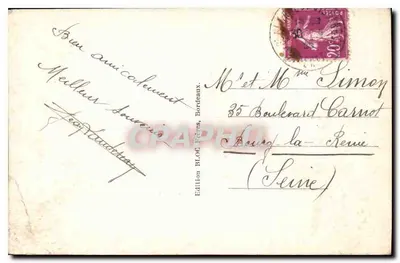 Bien amicalement
Meilleur souvenir
Edition BLOC Frères, Bordeaux.
20c
Mr et Mme Simon
35 Boulevard Carnot
Bourg-la-Reine
(Seine)
CPARAMA